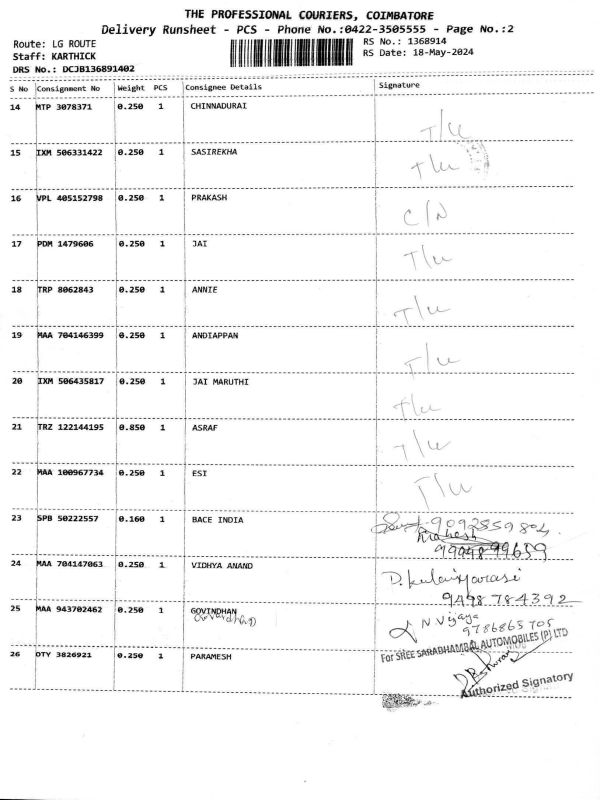 THE PROFESSIONAL COURIERS, COIMBATORE
Delivery Runsheet - PCS - Phone No.:0422-3505555 - Page No.:2
Route: LG ROUTE
Staff: KARTHICK
DRS No.: DCJB136891402
RS No.: 1368914
RS Date: 18-May-2024
S No Consignment No Weight PCS Consignee Details Signature
14 MTP 3078371 0.250 1 CHINNADURAI T/u
15 IXM 506331422 0.250 1 SASIREKHA T/u
16 VPL 405152798 0.250 1 PRAKASH C/N
17 PDM 1479606 0.250 1 JAI T/u
18 TRP 8062843 0.250 1 ANNIE T/u
19 MAA 704146399 0.250 1 ANDIAPPAN T/u
20 IXM 506435817 0.250 1 JAI MARUTHI T/u
21 TRZ 122144195 0.850 1 ASRAF T/u
22 MAA 100967734 0.250 1 ESI T/u
23 SPB 50222557 0.160 1 BACE INDIA
Mahesh
24 MAA 704147063 0.250 1 VIDHYA ANAND D. kulaiyarasi
9498 784392
25 MAA 943702462 0.250 1 GOVINDHAN N Vijaya
9786865705
26 OTY 3826921 0.250 1 PARAMESH
For SREE SARADHAMBAL AUTOMOBILES (P) LTD
Authorized Signatory